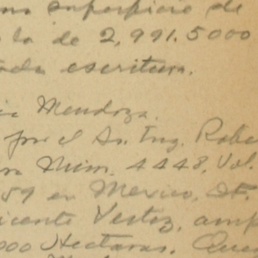 superficie de
la de 2,991.5000
escritura.
Mendoza.
por el Sr. Ing. Robe
Núm. 4448, Vol.
59 en México, D.F.
icente Vertoz, amp
000 Hectáreas. Que